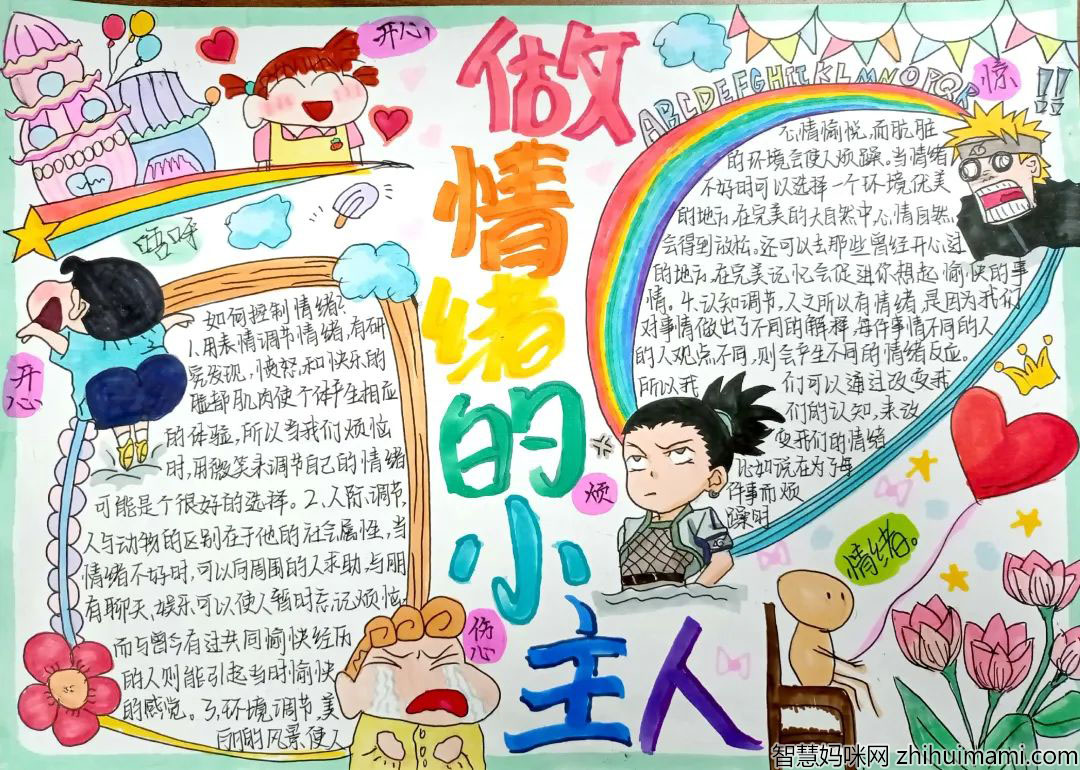 做
情
绪
的
小
主
人
开心
ABCDEFGHIJKLMNOPQR
惊
!!
开心
如何控制情绪?
1.用表情调节情绪,有研
究发现,愤怒和快乐的
脸部肌肉使个体产生相应
的体验,所以当我们烦恼
时,用微笑来调节自己的情绪
可能是个很好的选择。2.人际调节,
人与动物的区别在于他的社会属性,当
情绪不好时,可以向周围的人求助,与朋
友聊天、娱乐可以使人暂时忘记烦恼,
而与曾今有过共同愉快经历
的人则能引起当时愉快
的感觉。3,环境调节,美
丽的风景使人
伤心
心情愉悦,而肮脏
的环境会使人烦躁。当情绪
不好时可以选择一个环境优美
的地方,在完美的大自然中,心情自然
会得到放松。还可以去那些曾经开心过
的地方,在完美记忆会促进你想起愉快的事
情。4.认知调节,人之所以有情绪,是因为我们
对事情做出了不同的解释,每件事情不同的人
的人观点不同,则会产生不同的情绪反应。
所以我们可以通过改变我
们的认知,来改
变我们的情绪
比如说在为了每
件事而烦
躁时
烦
情绪。
智慧妈咪网 zhihuimami.com